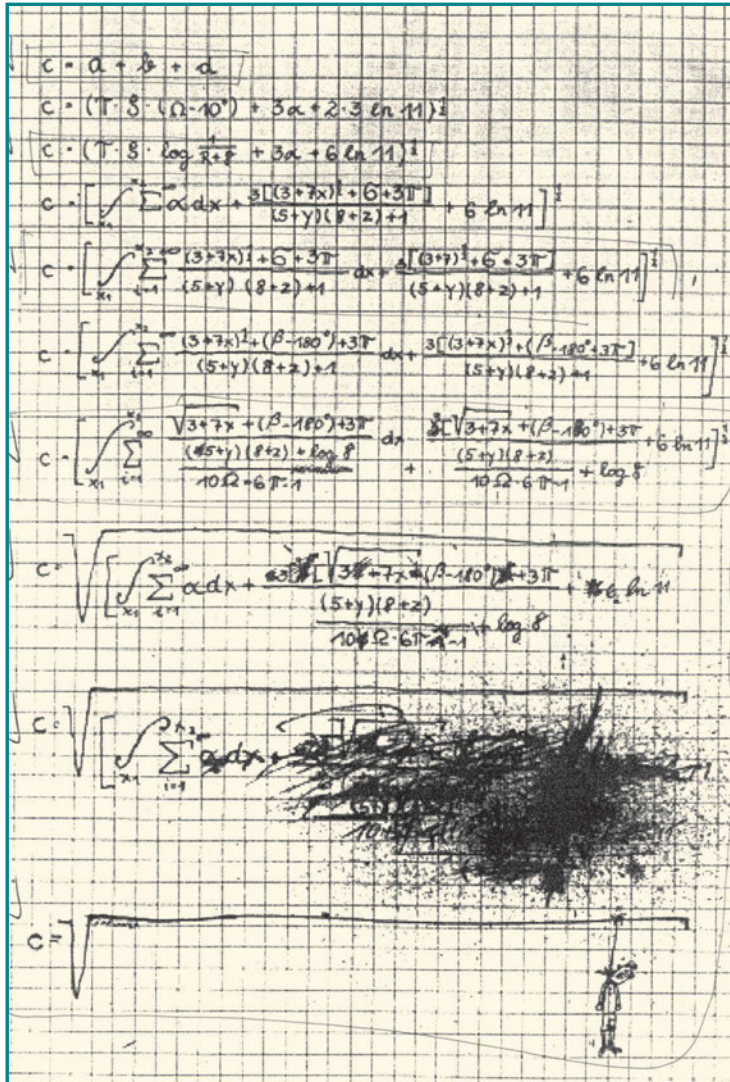 c = a + b + d
c = (T · S · (Ω·10°) + 3α + 2·3 ln 11)^½
c = (T · S · log 1/(R+8) + 3α + 6 ln 11)^½
c = [∫_{x₁}^{x₂} ∑^∞ α dx + 3[(3+7x)^½ + 6 + 3π] / ((5+y)(8+z)+1) + 6 ln 11]^½
c = [∫_{x₁}^{x₂} ∑_{i=1}^∞ ((3+7x)^½ + 6 + 3π) / ((5+y)(8+z)+1) dx + 3[(3+7)^½ + 6 + 3π] / ((5+y)(8+z)+1) + 6 ln 11]^½
c = [∫_{x₁}^{x₂} ∑_{i=1}^∞ ((3+7x)^½ + (β-180°) + 3π) / ((5+y)(8+z)+1) dx + 3[(3+7x)^½ + (β-180° + 3π] / ((5+y)(8+z)+1) + 6 ln 11]^½
c = [∫_{x₁}^{x₂} ∑_{i=1}^∞ (√(3+7x) + (β-180°) + 3π) / (((5+y)(8+z) + log 8) / (10Ω·6π-1)) dx + 3[√(3+7x) + (β-180°) + 3π / ((5+y)(8+z) / (10Ω·6π-1) + log 8) + 6 ln 11]^½
c = √[∫_{x₁}^{x₂} ∑_{i=1}^∞ α dx + 3[√(3+7x) + (β-180°) + 3π / ((5+y)(8+z) / (10Ω·6π-1) + log 8) + 6 ln 11
c = √[∫_{x₁}^{x₂} ∑_{i=1}^∞ α dx +
c = √